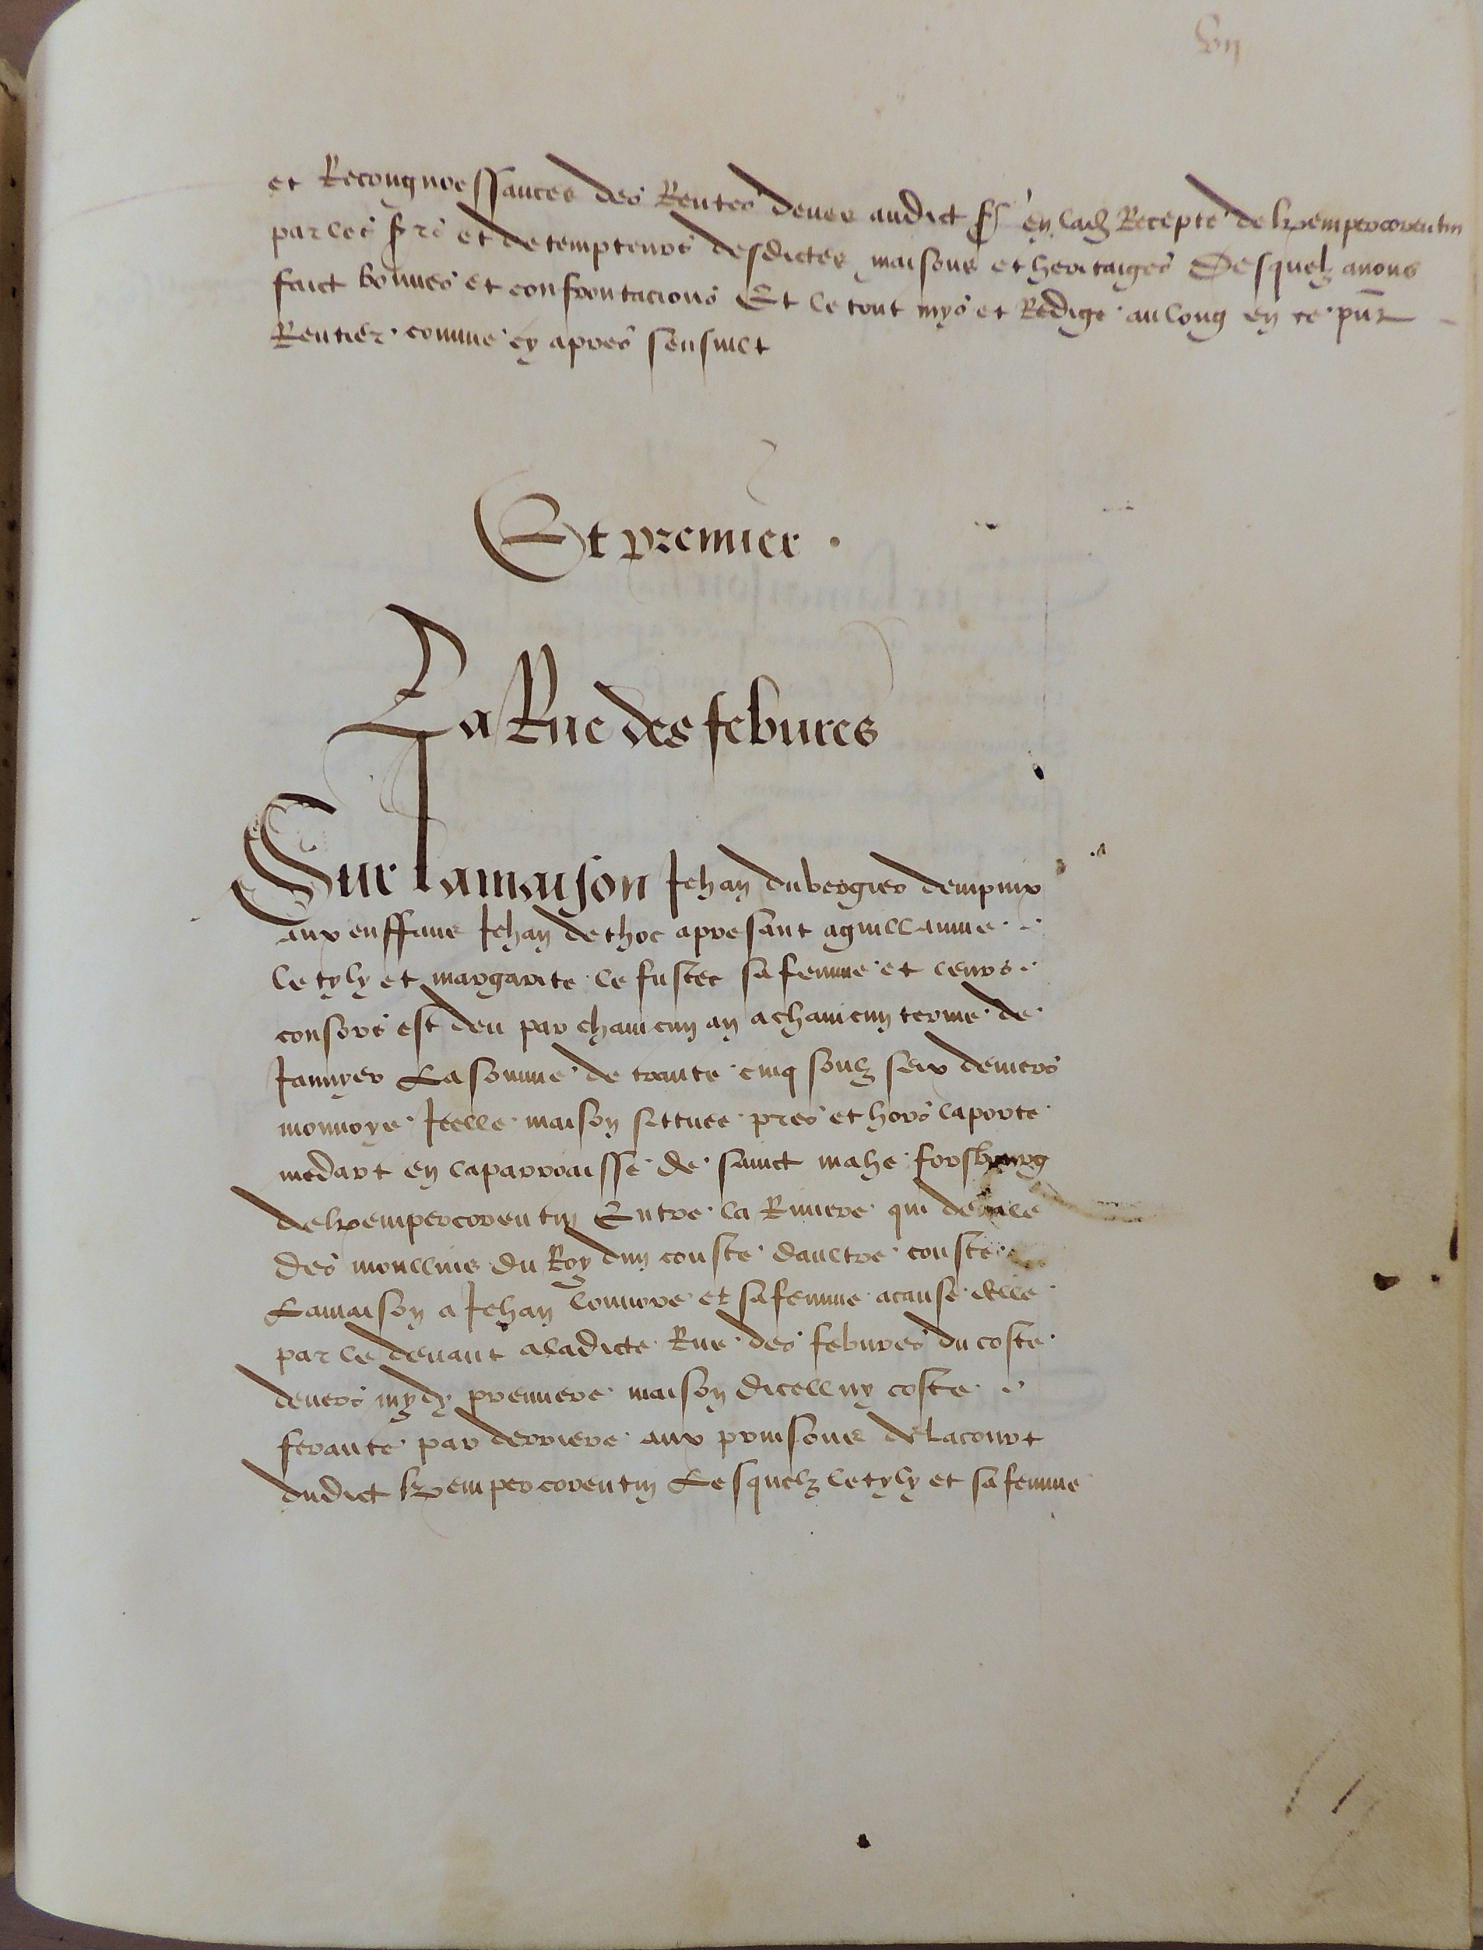 et Recongnoessances des Rentes deues audict sr en lad Recepte de kempercorentin
par les srs et detempteurs desdictes maisons et heritaiges Desquelz avons
faict bonnes et confrontacions Et le tout mys et Redige au long en ce pnt
Rentier comme cy apres sensuict
Et premier
La Rue des febures
Sur la maison Jehan du vergier dempuix
aux enffans Jehan de thoc apresant a guillaume
le tyly et margarite le fustec sa femme et leurs
consors est deu par chaincun an a chaincun terme de
Januyer La somme de trante cinq soulz seix deniers
monnoye Icelle maison sittuee pres et hors la porte
medart en la parroaisse de sainct mahe forsbourg
de kempercorentin Entre la Riviere qui devale
des moullins du Roy dun couste daultre couste
La maison a Jehan lonnore et sa femme a cause delle
par le devant a ladicte Rue des febures du coste
devers mydy premiere maison dicelluy coste
ferante par derriere aux prinsons de la court
dudict kempercorentin Lesquelz le tyly et sa femme